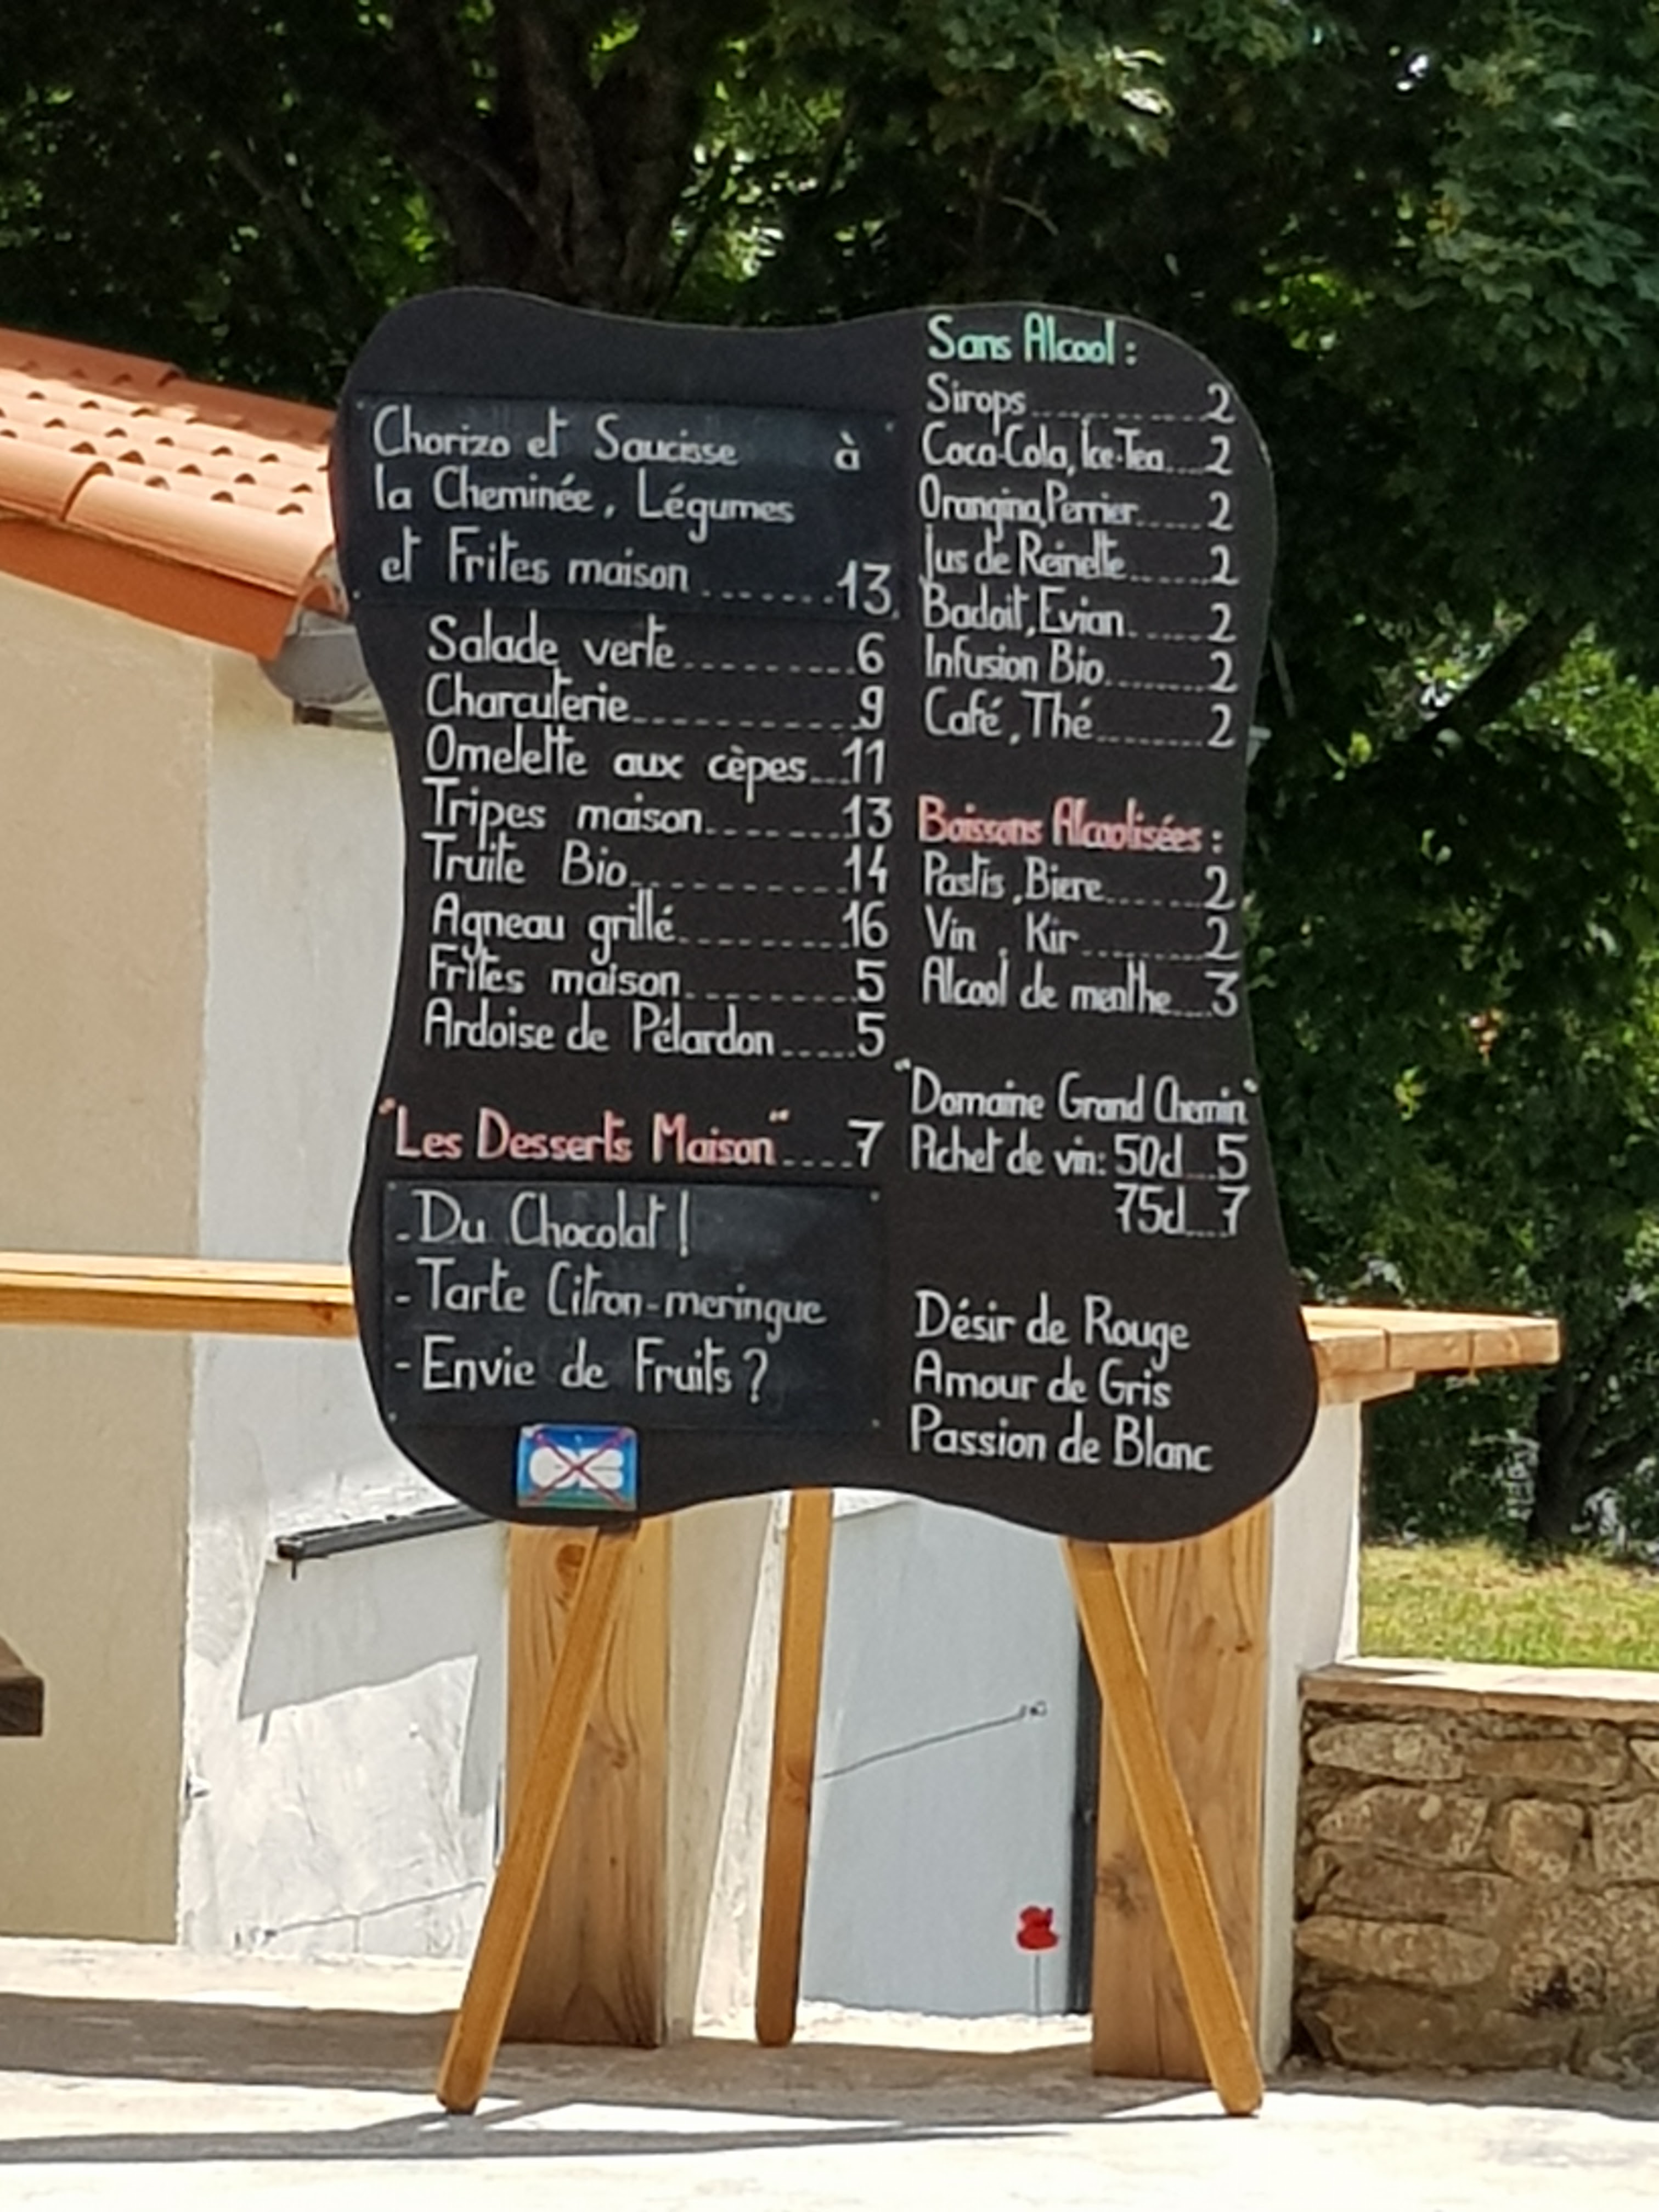 Chorizo et Saucisse à
la Cheminée, Légumes
et Frites maison.......13
Salade verte.........6
Charcuterie...........9
Omelette aux cèpes...11
Tripes maison.......13
Truite Bio...........14
Agneau grillé.........16
Frites maison.........5
Ardoise de Pélardon.....5
"Les Desserts Maison"....7
- Du Chocolat !
- Tarte Citron-meringue
- Envie de Fruits ?
Sans Alcool :
Sirops............2
Coca-Cola, Ice-Tea...2
Orangina, Perrier.....2
Jus de Reinette......2
Badoit, Evian......2
Infusion Bio.......2
Café, Thé.......2
Boissons Alcoolisées :
Pastis, Biere.......2
Vin, Kir.......2
Alcool de menthe...3
"Domaine Grand Chemin"
Pichet de vin: 50cl...5
75cl...7
Désir de Rouge
Amour de Gris
Passion de Blanc